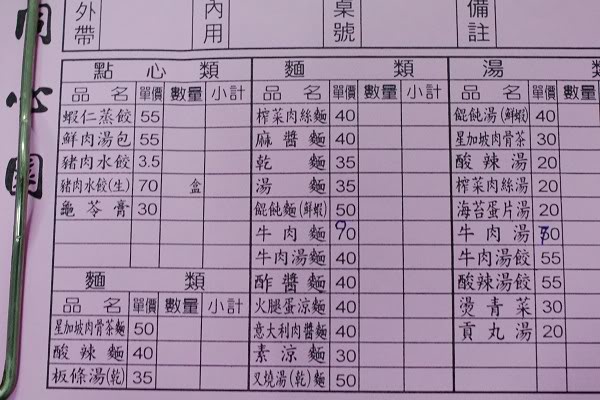 外帶
內用
桌號
備註
同心園
點心類
品名 單價 數量 小計
蝦仁蒸餃 55
鮮肉湯包 55
豬肉水餃 3.5
豬肉水餃(生) 70 盒
龜苓膏 30
麵類
品名 單價 數量 小計
星加坡肉骨茶麵 50
酸辣麵 40
板條湯(乾) 35
麵類
品名 單價 數量 小計
榨菜肉絲麵 40
麻醬麵 40
乾麵 35
湯麵 35
餛飩麵(鮮蝦) 50
牛肉麵 90
牛肉湯麵 40
酢醬麵 40
火腿蛋涼麵 40
意大利肉醬麵 40
素涼麵 30
叉燒湯(乾)麵 50
湯類
品名 單價 數量
餛飩湯(鮮蝦) 40
星加坡肉骨茶 30
酸辣湯 20
榨菜肉絲湯 20
海苔蛋片湯 20
牛肉湯 0
牛肉湯餃 55
酸辣湯餃 55
燙青菜 30
貢丸湯 20